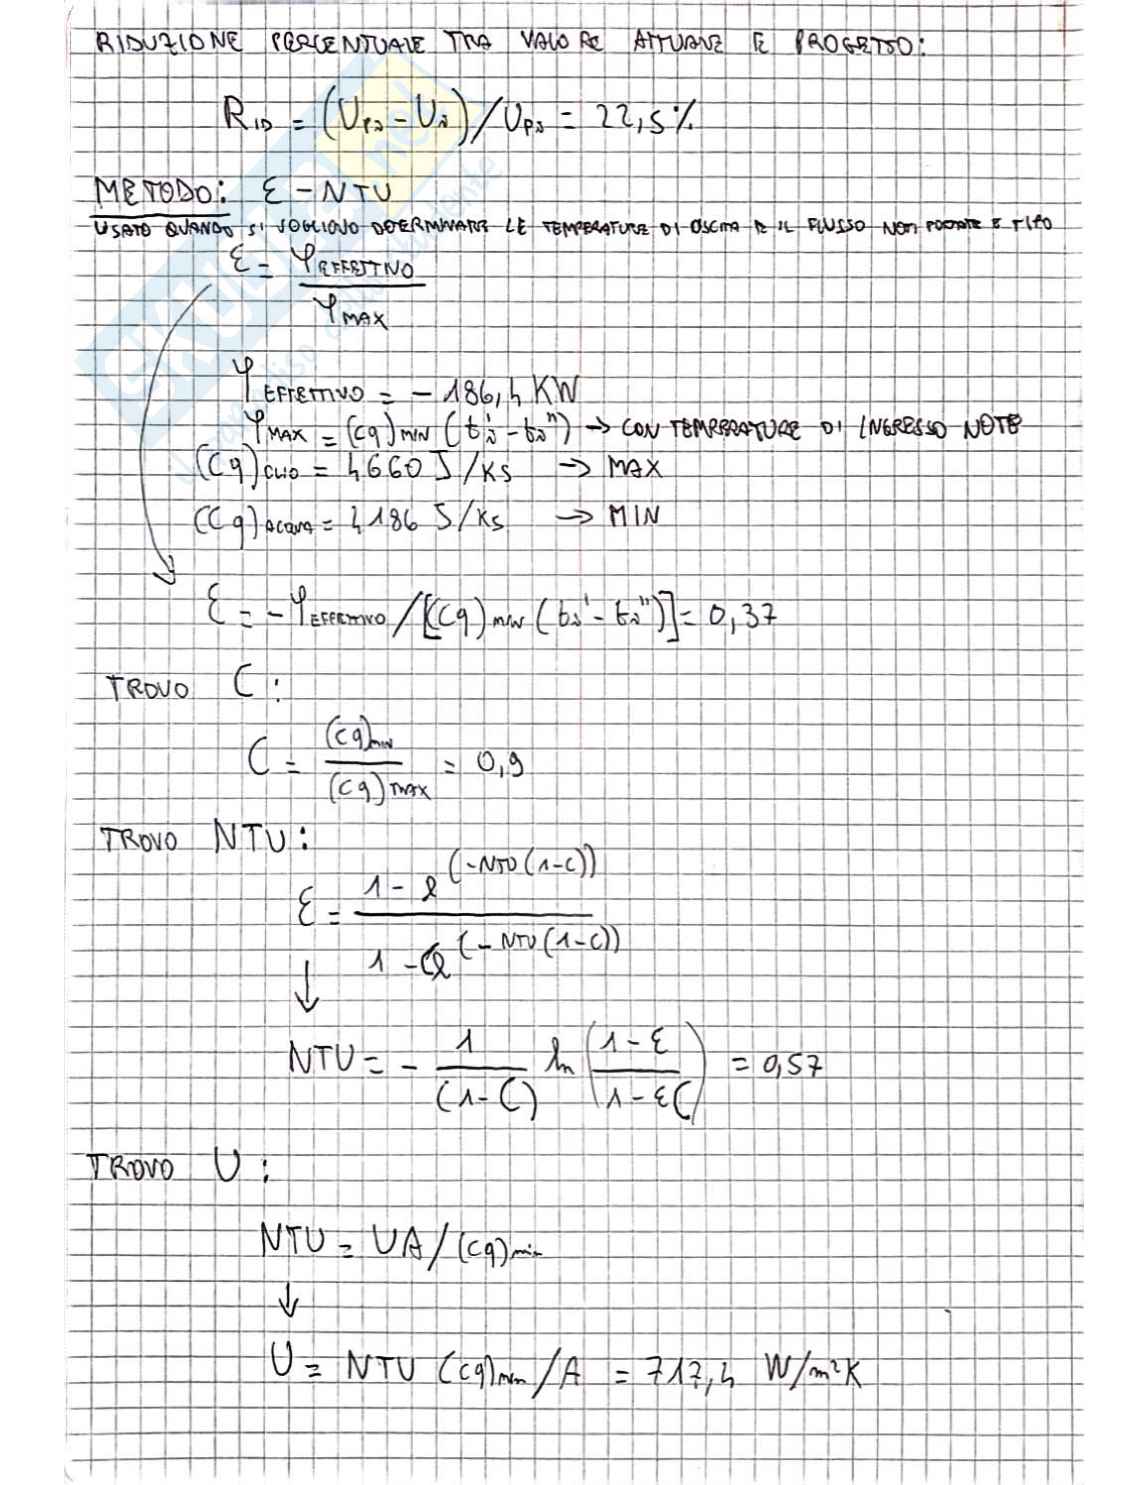 RIDUZIONE PERCENTUALE TRA VALORE ATTUALE E PROGETTO:
RID = (Up2 - U2)/Up2 = 22,5%
METODO: ε - NTU
USATO QUANDO SI VOGLIONO DETERMINARE LE TEMPERATURE DI USCITA E IL FLUSSO NOTI PORTATE E TIPO
ε = φEFFETTIVO / φMAX
φEFFETTIVO = - 186,4 KW
φMAX = (cq)MIN (t2' - t2") → CON TEMPERATURE DI INGRESSO NOTE
(cq)OLIO = 4660 J/Ks → MAX
(cq)ACQUA = 4186 J/Ks → MIN
ε = - φEFFETTIVO / [(cq)MIN (t2' - t2")] = 0,37
TROVO C:
C = (cq)MIN / (cq)MAX = 0,9
TROVO NTU:
ε = 1 - e^(-NTU(1-C)) / 1 - Ce^(-NTU(1-C))
↓
NTU = - 1/(1-C) ln (1-ε / 1-εC) = 0,57
TROVO U:
NTU = UA/(cq)min
↓
U = NTU (cq)min/A = 717,4 W/m²K
SKUOLA.net